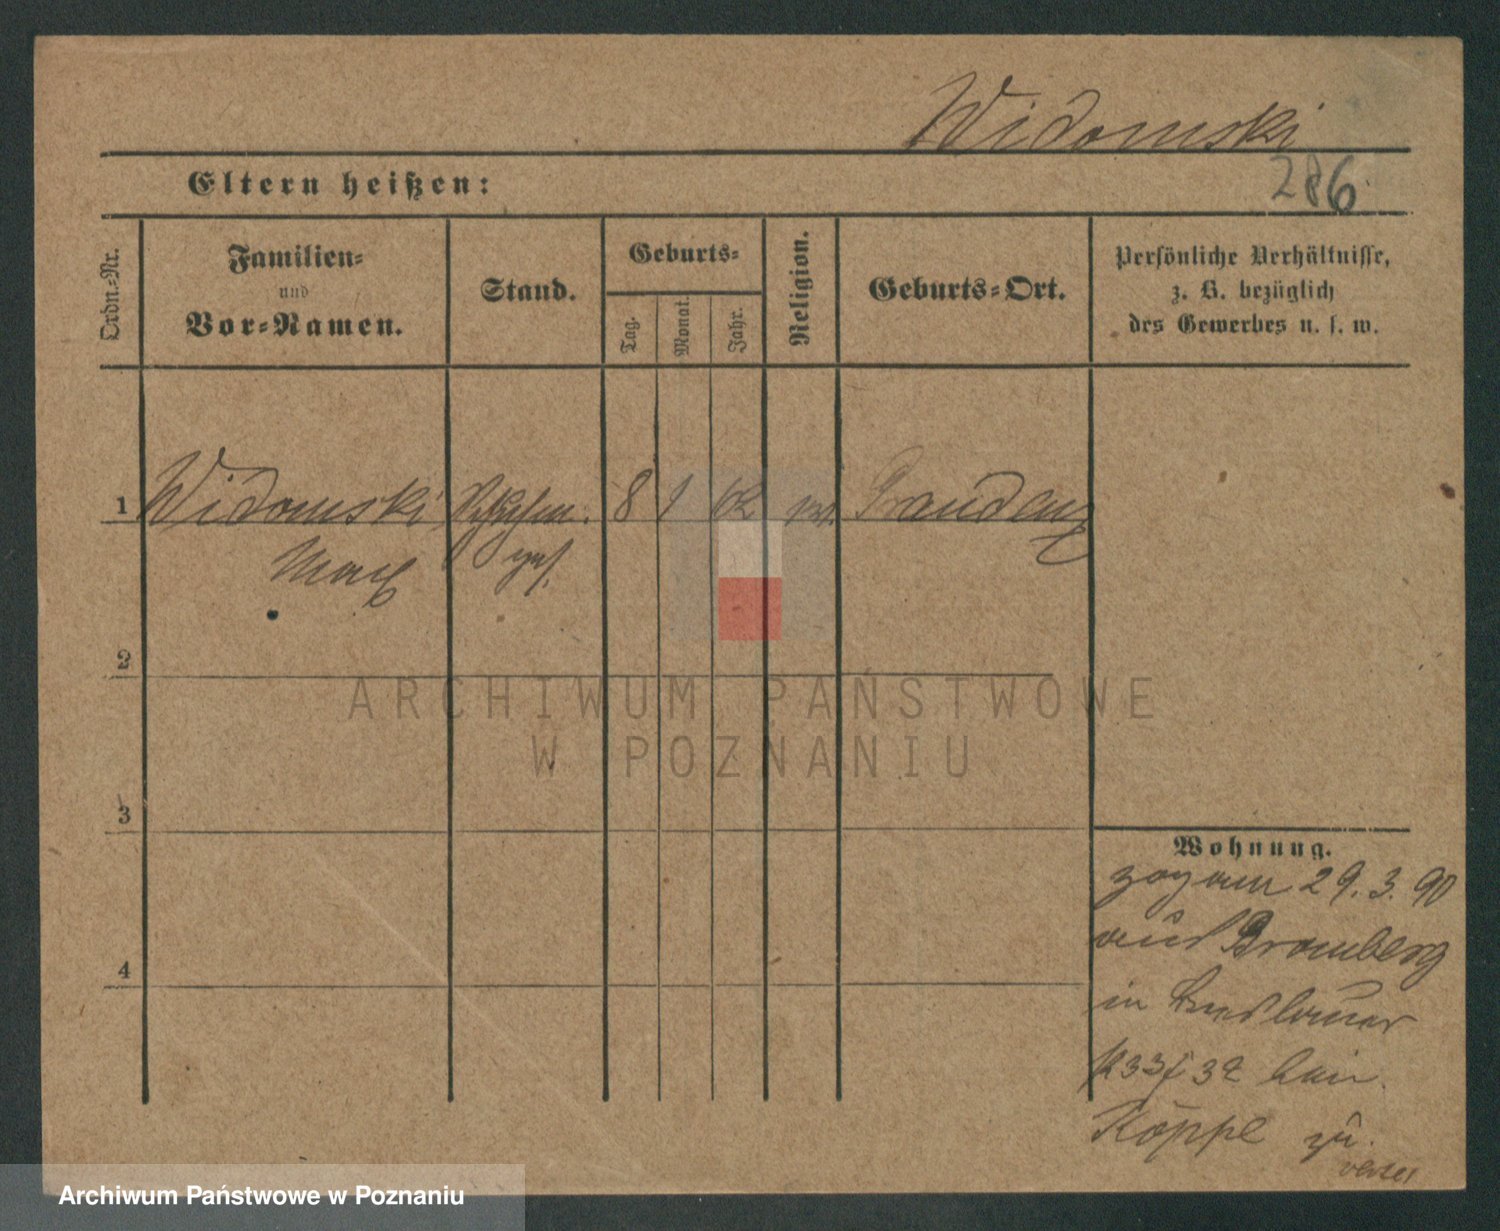 Widomski
286
Eltern heißen:
Ordn.-Nr.
Familien-
und
Vor-Namen.
Stand.
Geburts-
Tag.
Monat.
Jahr.
Religion.
Geburts-Ort.
Persönliche Verhältnisse,
z. B. bezüglich
des Gewerbes u. s. w.
1 Widomski 8 1 62 Graudenz
Max
2
3
4
Wohnung.
zog am 29.3.90
aus Bromberg
in
Köppe zu.
ARCHIWUM PAŃSTWOWE
W POZNANIU
Archiwum Państwowe w Poznaniu